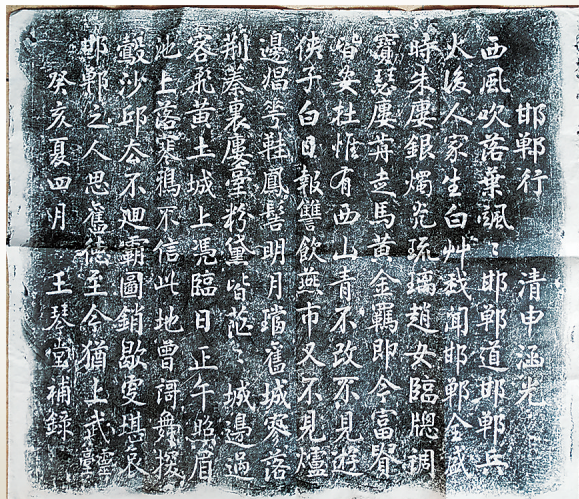 邯鄲行 清申涵光
西風吹落葉颯〻邯鄲道邯鄲兵
火後人家生白艸我聞邯鄲全盛
時朱廔銀燭光琉璃趙女臨牕調
寶瑟廔前走馬黃金羈即今富貴
皆安在惟有西山青不改不見遊
俠子白日報讐飲燕市又不見爐
邊娼鞋鳳髻明月璫舊城寥落
荊蓁裏廔臺粉黛皆茫〻城邊過
客飛黃土城上憑臨日正午照眉
池上落寒鴉不信此地曾謌舞探
鷇沙邱去不廻霸圖銷歇更堪哀
邯鄲之人思舊德至今猶上武靈臺
癸亥夏四月 王琴堂補錄